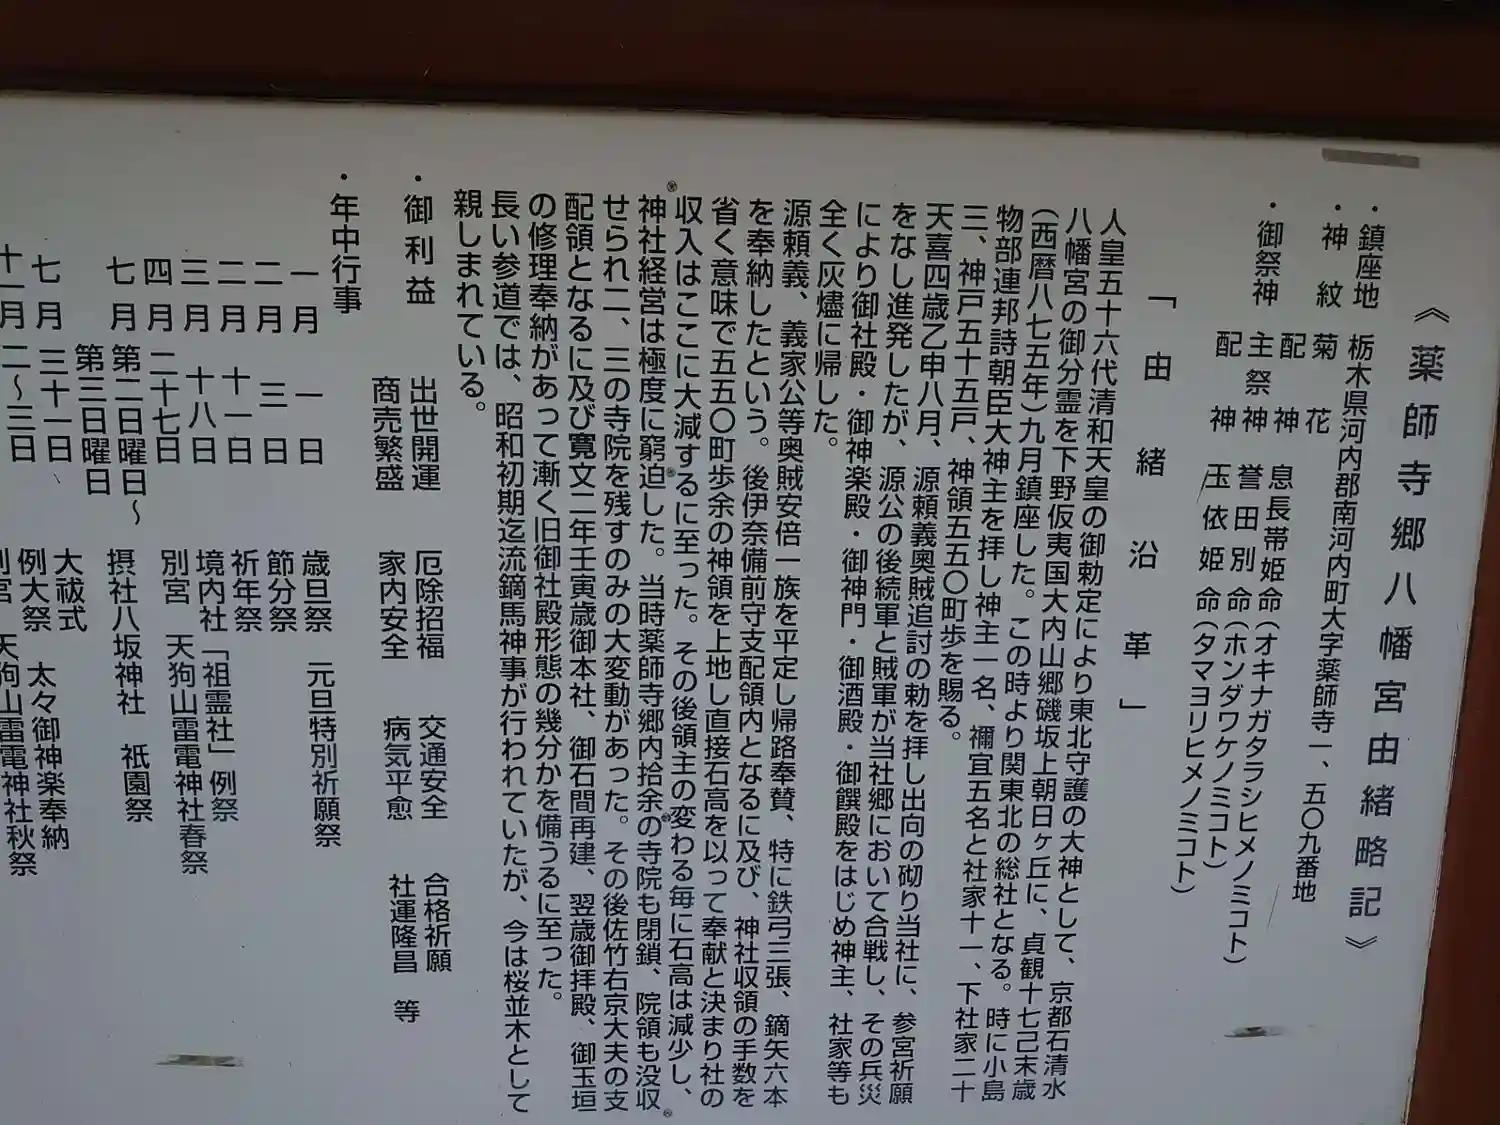 《薬師寺郷八幡宮由緒略記》
・鎮座地 栃木県河内郡南河内町大字薬師寺一、五〇九番地
・神紋 菊花
配神 息長帯姫命(オキナガタラシヒメノミコト)
・御祭神 主祭神 誉田別命(ホンダワケノミコト)
配神 玉依姫命(タマヨリヒメノミコト)
「由緒沿革」
人皇五十六代清和天皇の御勅定により東北守護の大神として、京都石清水
八幡宮の御分霊を下野仮夷国大内山郷磯坂上朝日ヶ丘に、貞観十七己未歳
(西暦八七五年)九月鎮座した。この時より関東北の総社となる。時に小島
物部連邦詩朝臣大神主を拝し神主一名、禰宜五名と社家十一、下社家二十
三、神戸五十五戸、神領五五〇町歩を賜る。
天喜四歳乙申八月、源頼義奥賊追討の勅を拝し出向の砌り当社に、参宮祈願
をなし進発したが、源公の後続軍と賊軍が当社郷において合戦し、その兵災
により御社殿・御神楽殿・御神門・御酒殿・御饌殿をはじめ神主、社家等も
全く灰燼に帰した。
源頼義、義家公等奥賊安倍一族を平定し帰路奉賛、特に鉄弓三張、鏑矢六本
を奉納したという。後伊奈備前守支配領内となるに及び、神社収領の手数を
省く意味で五五〇町歩余の神領を上地し直接石高を以って奉献と決まり社の
収入はここに大減するに至った。その後領主の変わる毎に石高は減少し、
神社経営は極度に窮迫した。当時薬師寺郷内拾余の寺院も閉鎖、院領も没収
せられ二、三の寺院を残すのみの大変動があった。その後佐竹右京大夫の支
配領となるに及び寛文二年壬寅歳御本社、御石間再建、翌歳御拝殿、御玉垣
の修理奉納があって漸く旧御社殿形態の幾分かを備うるに至った。
長い参道では、昭和初期迄流鏑馬神事が行われていたが、今は桜並木として
親しまれている。
・御利益 出世開運 厄除招福 交通安全 合格祈願
商売繁盛 家内安全 病気平愈 社運隆昌 等
・年中行事
一月 一日 歳旦祭 元旦特別祈願祭
二月 三日 節分祭
二月 十一日 祈年祭
三月 十八日 境内社「祖霊社」例祭
四月 二十七日 別宮 天狗山雷電神社春祭
七月 第二日曜日〜 摂社八坂神社 祇園祭
第三日曜日
七月 三十一日 大祓式
例大祭 太々御神楽奉納
十一月 二〜三日 別宮 天狗山雷電神社秋祭